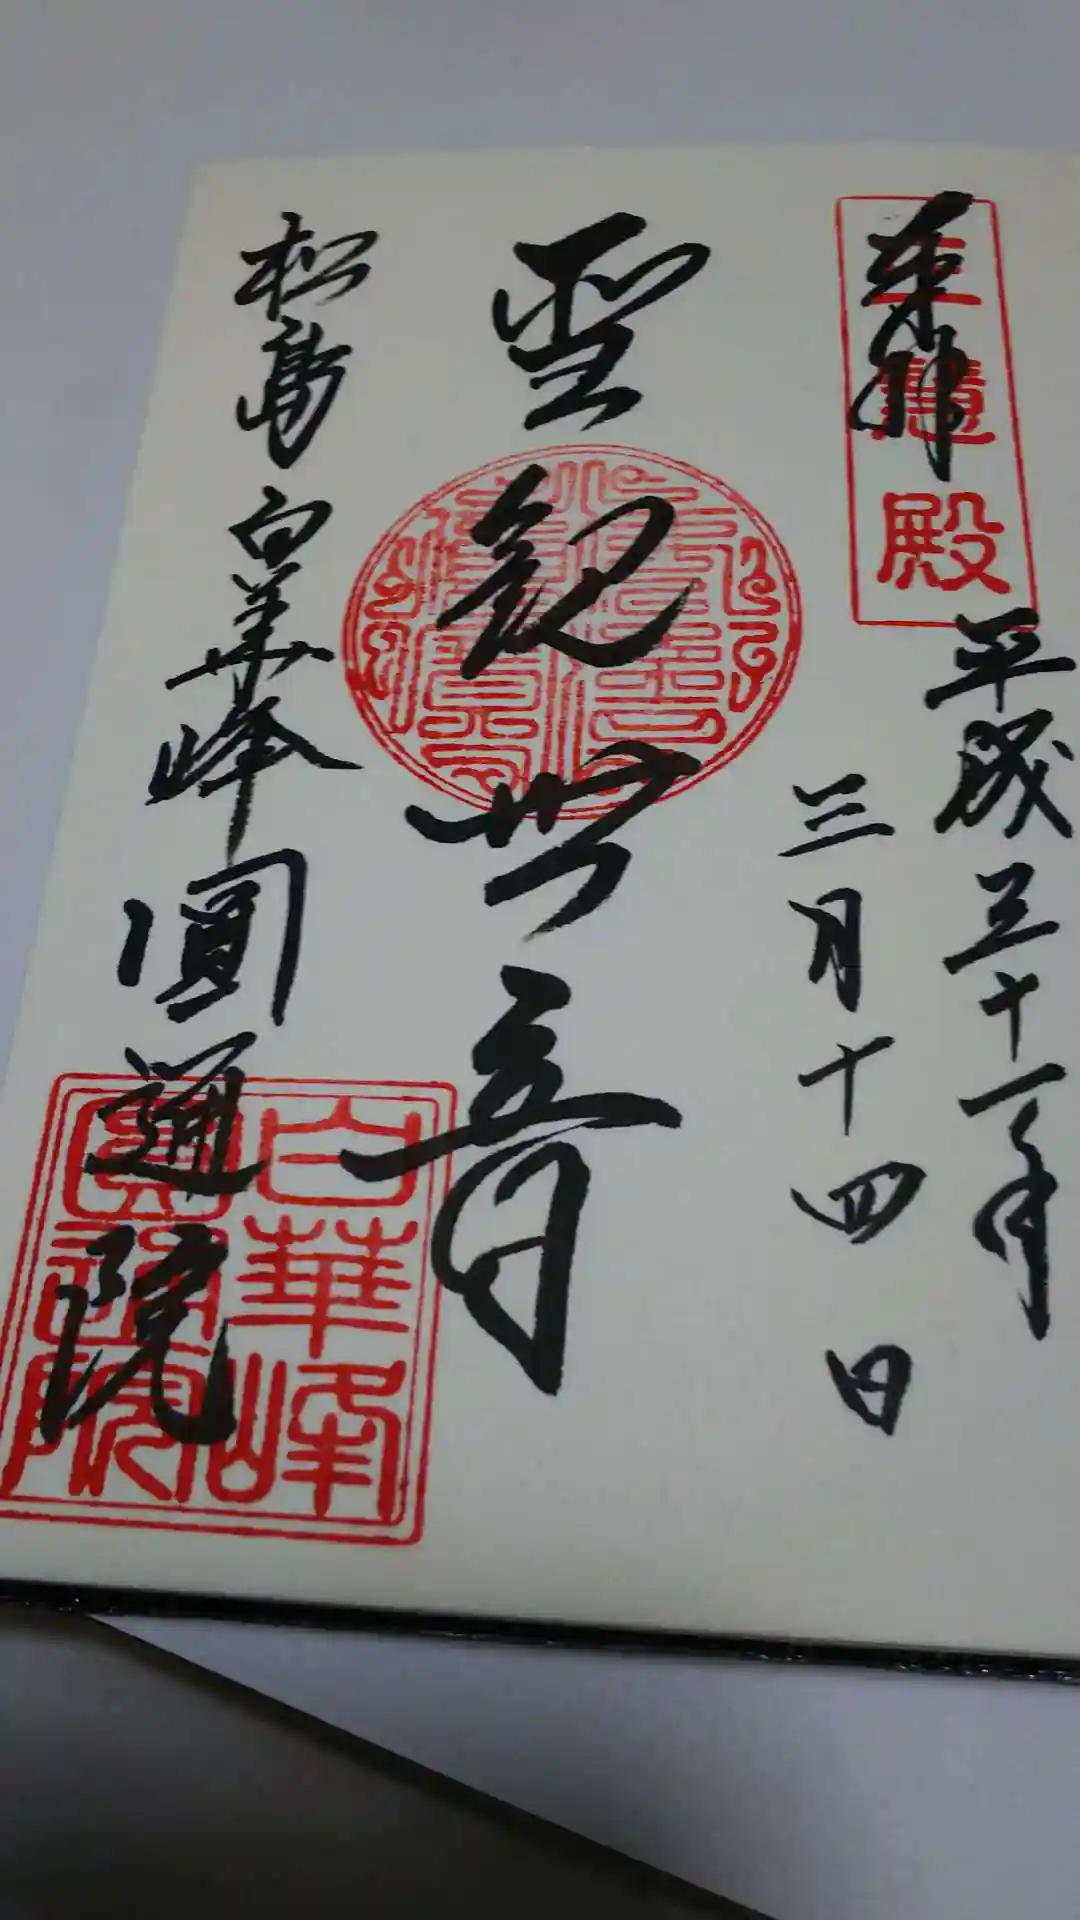 奉拝
三慧殿
平成三十一年
三月十四日
聖観世音
松島 白華峰 圓通院
白華峰
圓通院